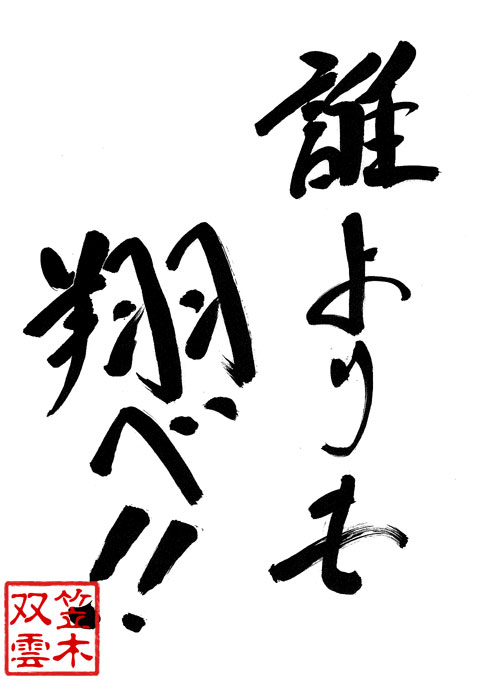 誰よりも
翔べ!!
笠木
双雲